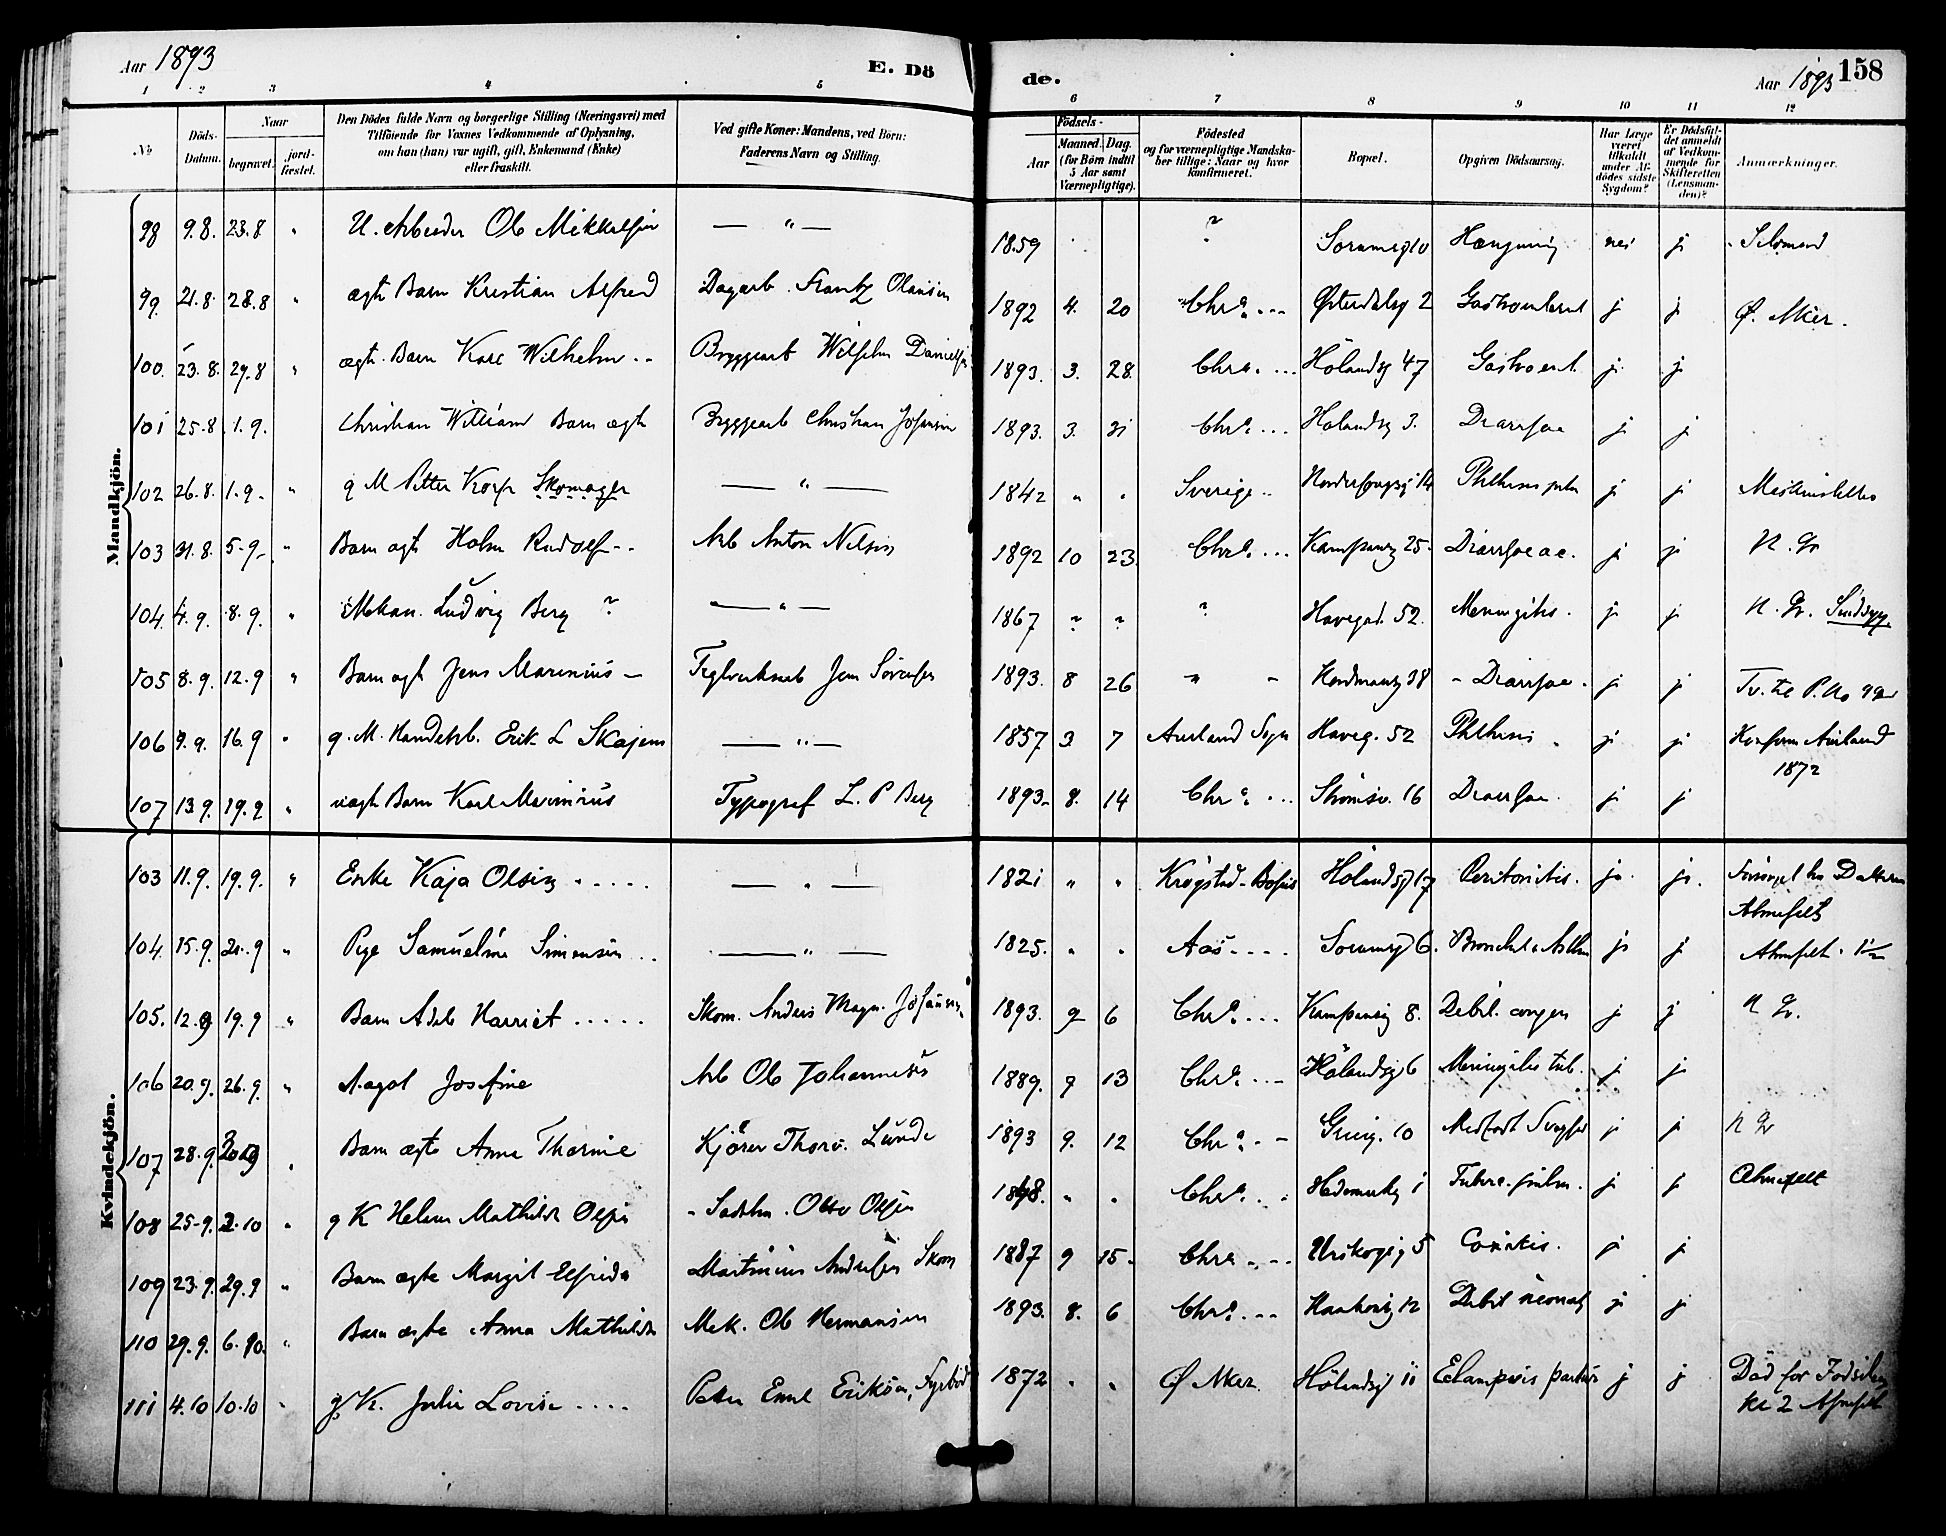 Aar 1893
E. Dö
de.
Aar 1893
158
1 2 3 4 5 6 7 8 9 10 11 12
No
Döds-Datum.
Naar
begravet.
jord-fæstet.
Den Dödes fulde Navn og borgerlige Stilling (Næringsvei) med
Tilföiende for Voxnes Vedkommende af Oplysning,
om han (hun) var ugift, gift, Enkemand (Enke)
eller fraskilt.
Ved gifte Koner: Mandens, ved Börn:
Faderens Navn og Stilling.
Födsels-
Aar
Maaned. Dag.
(for Börn indtil
5 Aar samt
Værnepligtige).
Födested
og for værnepligtige Mandska-
ber tillige: Naar og hvor
konfirmeret.
Bopæl.
Opgiven Dödsaarsag.
Har Læge
været
tilkaldt
under Af-
dödes sidste
Sygdom?
Er Dödsfal-
det anmeldt
af Vedkom-
mende for
Skifteretten
(Lensman-
den)?
Anmærkninger.
Mandkjön.
98 9.8. 23.8 " U. Arbeider Ole Mikkelsen — " — 1859 ? nei j Selvmord
99. 21.8. 28.8 " ægte Barn Kristian Alfred Dagarb. Frantz Olausen 1892 4. 20 Chra. Østerdalsg 2 j j Ø. Aker.
100. 23.8. 29.8 " ægt. Barn Karl Wilhelm Bryggearb Wilhelm Danielsen 1893. 3. 28. Chra. Hölandsg 47 Gastroent. j j
101 25.8. 1.9. Christian William Barn ægte Bryggearb Christian Johansen 1893. 3. 21 Chra. Hölandsg 3. Diarrhoe j j
102 26.8. 1.9. " g M Petter Skomager — " — 1842 " " Sverige j j
103 31.8. 5.9. " Barn ægte Holm Rudolf Arb Anton Nilsen 1892 10 23. Chra. Kampensg 25. Diarrhoe ac. j j N. Gr
104. 4.9. 8.9. " Mekan. Ludvig Berg ? — " — 1867 ? ? ? Havegad. 52. Meningitis. j j N. Gr. Sindssyg.
105 8.9. 12.9 " Barn ægte Jens Marinius Teglverksarb Jens Sörensen 1893. 8 26 " Diarrhoe. j j
106 9.9. 16.9 " g. M. Erik L Skajem — " — 1857 3 7 Aurland Sogn Haveg. 52 Phthisis j j Konfirm Aurland
1872
107 13.9. 19.9 " uægte Barn Karl Marinius Typograf L. P Berg 1893. 8. 14 Chra. Strömsv. 16 Diarrhoe. j j
Kvindekjön.
103 11.9. 19.9. " Enke Kaja Olsen — " — 1821 " " Hölandsg 17 Peritonitis. ja. ja. Forsörget hos Datteren
Almefelt
104. 15.9. 21.9 " Pige Samueline Simensen — " — 1825. " " Aas Sörumsg 6. j j Almefelt.
105. 12.9 19.9 " Barn Adele Harriet Skom. Anders Magn. Johansen 1893. 9 6 Chra. Kampensg 8. Debil. congen j j N Gr.
106 20.9. 26.9. " Aagot Josefine Arb Ole Johannesen 1889. 9 13 Chra. Hölandsg 6 Meningitis tub. j j
107 28.9. Barn ægte Anna Thorine Kjörer Thorv. Lunde 1893 9. 12 Chra. 10 Medfödt Svaghed j j N Gr
108 25.9. 2.10 " g K Helene Mathilde Olsen Olsen Chra. Hedemarksg 1 j j Almefelt
109 23.9. 29.9 " Barn ægte Margit Elfrida Martinius Andersen Skom 1887 9 15. Chra. Urskogsg 5 Coxitis. j j
110 29.9. 6.10. " Barn ægte Anna Mathilde Mek. Ole Hermansen 1893. 8. 6 Chra. 12 Debil neonat j j
111 4.10 10.10 " g. K. Julie Lovise Petter Emil Eriksen, Fyrböd 1872 " " Ø Aker. Hölandsg 11 j j Död for Födselen
Kl 2 Almefelt